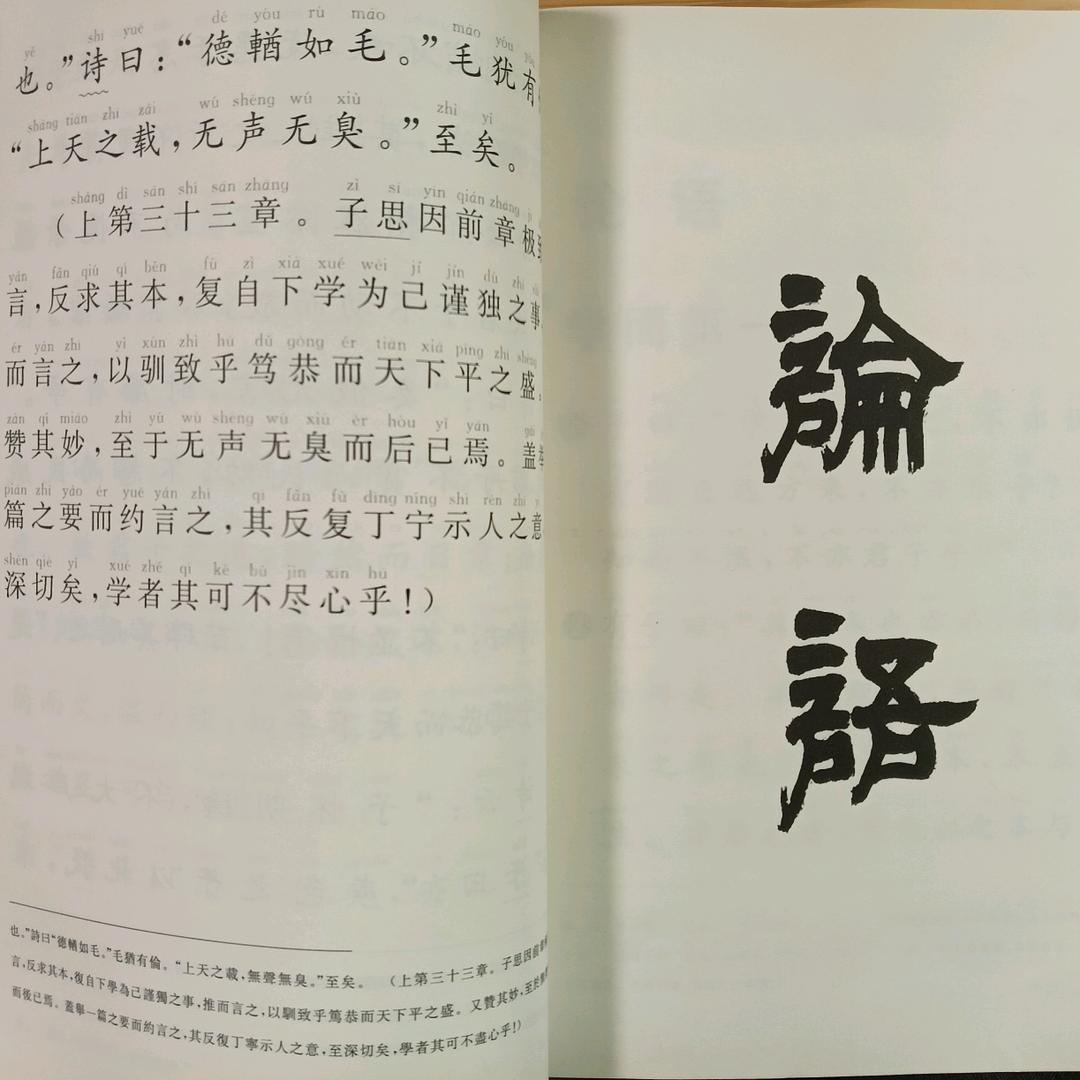 shī yuē dé yóu rú máo máo yóu
也。”诗曰：“德輶如毛。”毛犹有
shàng tiān zhī zǎi wú shēng wú xiù zhì yǐ
“上天之载，无声无臭。”至矣。
shàng dì sān shí sān zhāng zǐ sī yīn qián zhāng
（上第三十三章。子思因前章极
yán fǎn qiú qí běn fù zì xià xué wèi jǐ jǐn dú zhī
言，反求其本，复自下学为己谨独之事
ér yán zhī yǐ xùn zhì hū dǔ gōng ér tiān xià píng zhī shèng
而言之，以驯致乎笃恭而天下平之盛。
zàn qí miào zhì yú wú shēng wú xiù ér hòu yǐ yān gài
赞其妙，至于无声无臭而后已焉。盖
piān zhī yào ér yuē yán zhī qí fǎn fù dīng níng shì rén zhī
篇之要而约言之，其反复丁宁示人之意
shēn qiè yǐ xué zhě qí kě bù jìn xīn hū
深切矣，学者其可不尽心乎！）
也。”詩曰“德輶如毛。”毛猶有倫。“上天之載，無聲無臭。”至矣。（上第三十三章。子思因前章
言，反求其本，復自下學為己謹獨之事，推而言之，以馴致乎篤恭而天下平之盛。又贊其妙，至於
而後已焉。蓋舉一篇之要而約言之，其反復丁寧示人之意，至深切矣，學者其可不盡心乎！）
論
語